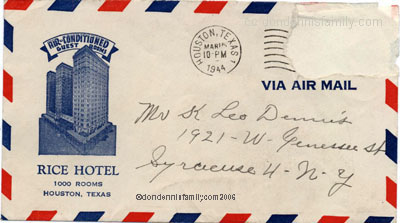 dendennisfamily.com
AIR-CONDITIONED
GUEST ROOMS
HOUSTON, TEXAS 1
MAR
10-PM
1944
VIA AIR MAIL
Mr K Leo Dennis
1921-W-Genesee st
Syracuse 4-N-Y
RICE HOTEL
1000 ROOMS
HOUSTON, TEXAS
@dondennisfamily.com2006